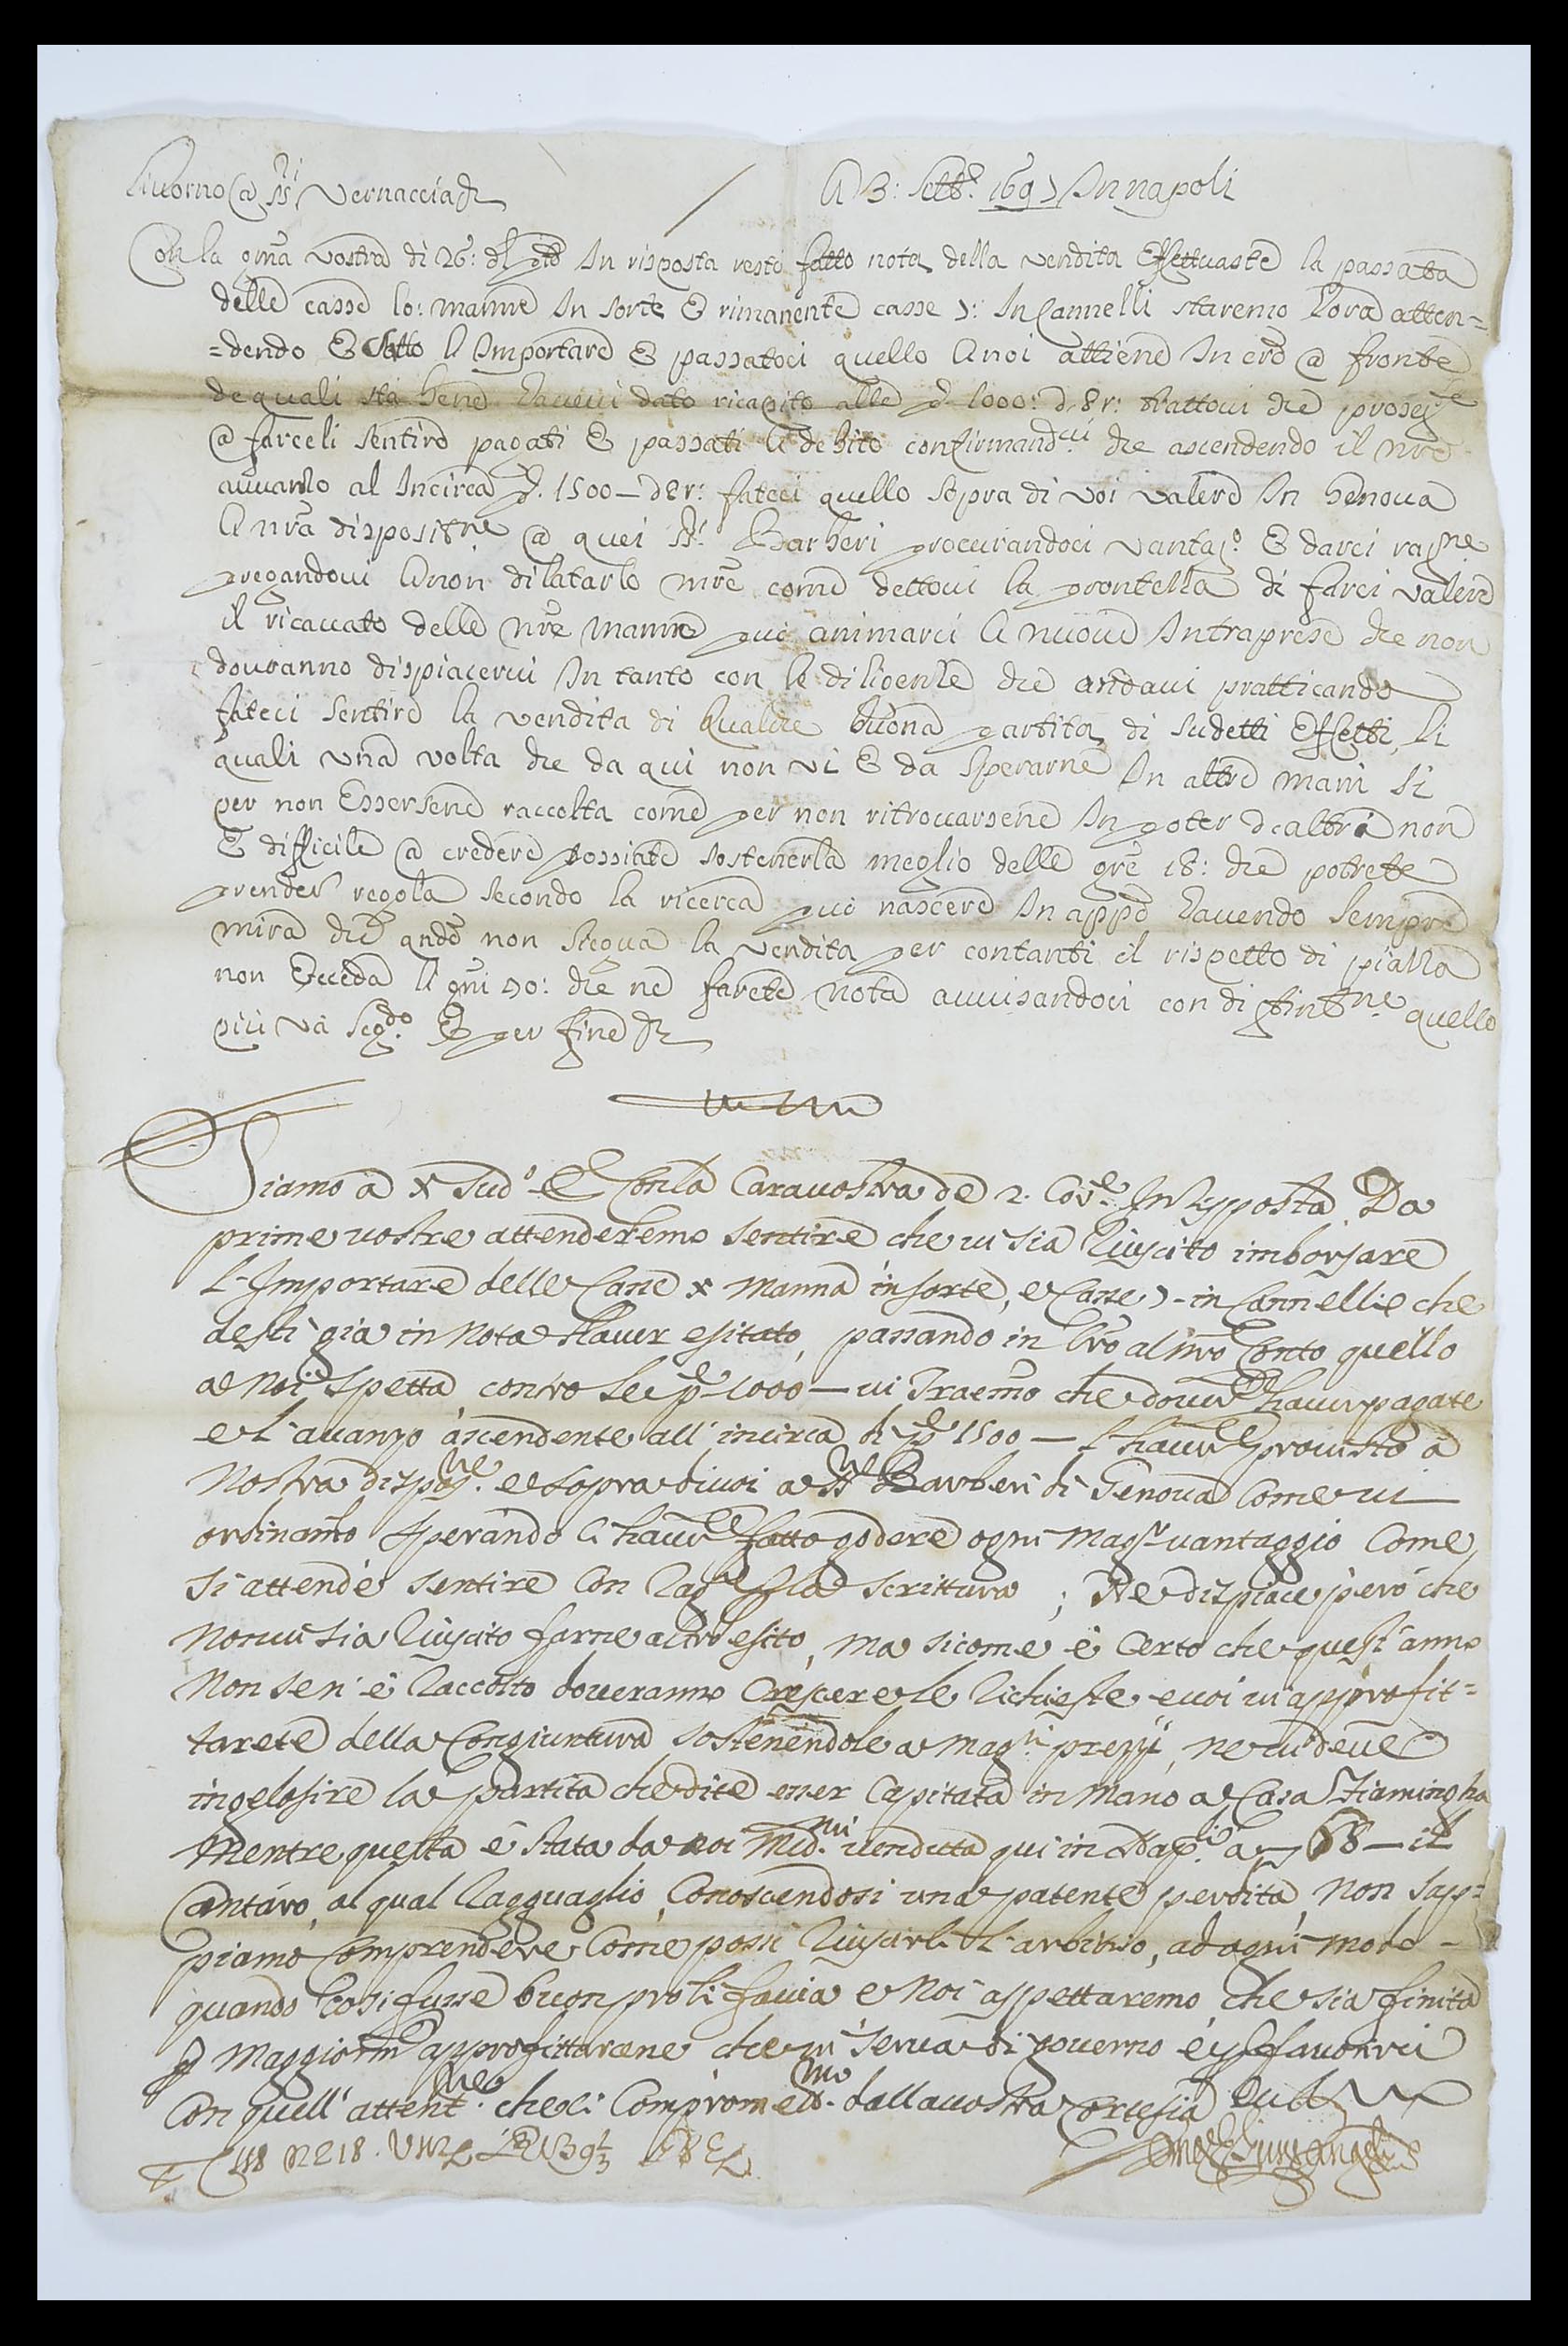 Livorno @ SSri Vernaccia &
A 3: Settbre 1697 In napoli
Con la grma vostra di 26: del pto In risposta resto fatto nota della vendita Effettuaste la passata
delle casse 10: manne In sorte E rimanente casse 7: In Cannelli staremo hora atten=
=dendo E sotto l Importare E passatoci quello A noi attiene In cro @ fronte
de quali sta bene havevi dato ricapito alle p. 1000: d 8 r: trattovi che
@ farceli sentire pagati E passati le debito confirmandovi che ascendendo il nro
avvanzo al Incirca p. 1500 — d 8 r: fateci quello sopra di voi valere In henova
A nra dispositne @ quei SSri Barberi procurandoci vantago E darci ragne
pregandovi A non dilatarlo mre come dettovi la prontezza di farci valere
il ricavato delle nre manne può animarci A nuove Intraprese che non
dovranno dispiacervi In tanto con le diligenze che andavi pratticando
fateci sentire la vendita di qualche buona partita di sudetti Effetti, li
quali una volta che da qui non vi E da sperarne In altre mani si
per non Essersene raccolta come per non ritrovarsene In poter de altri non
E difficile @ credere possiate sostenerla meglio delle gre 18: che potrete
prender regola secondo la ricerca può nascere In appo havendo sempre
mira che qndo non siegua la vendita per contanti il rispetto di piazza
non Ecceda li gni 90: che ne farete nota avvisandoci con distintne quello
più va segdo E per fine &
Siamo a X Sudo E Con la Cara vostra de 2. Cote In Risposta Da
prime vostre attenderemo sentire che vi sia Riuscito imborsare
L'Importare delle Casse X Manna in sorte, e Casse 7 - in Cannelli e che
desti già in Nota Haver esitato, passando in Cro al nro Conto quello
a Noi Spetta, contro le p 1000 — vi Traemo che dovrete haver pagate
e l'avanzo ascendente all'incirca di p 1500 — l'havrete provisto a
Nostra dispone e sopra di voi a SSri Barberi di Genova Come vi
ordinamo Sperando ci havrete fatto godere ogni Magr vantaggio Come
Si attende sentire Con Rage scritture ; Ne dispiace però che
Non vi sia Riuscito farne altro esito, ma sicome è Certo che quest'anno
Non sen' è Raccolto doveranno Crescere le Richieste e voi vi approfit=
tarete della Congiuntura sostenendole a Magri prezzi, ne vi deve
ingelosire la partita che dite esser Capitata in Mano a Casa Fiamingha
Mentre questa è stata da noi Medmi venduta qui in Napli a 68 — il
Cantaro, al qual Ragguaglio, Conoscendosi una patente perdita, Non Sap=
piamo Comprendere Come possi Riuscirli L'arbitrio, ad ogni modo -
quando Così fusse buon pro li faccia e Noi aspettaremo che sia finita
p Maggiormte approfittarcene, che vi serva di governo e favorirci
Con quell' attentne che ci Comprommo dalla vostra Cortesia